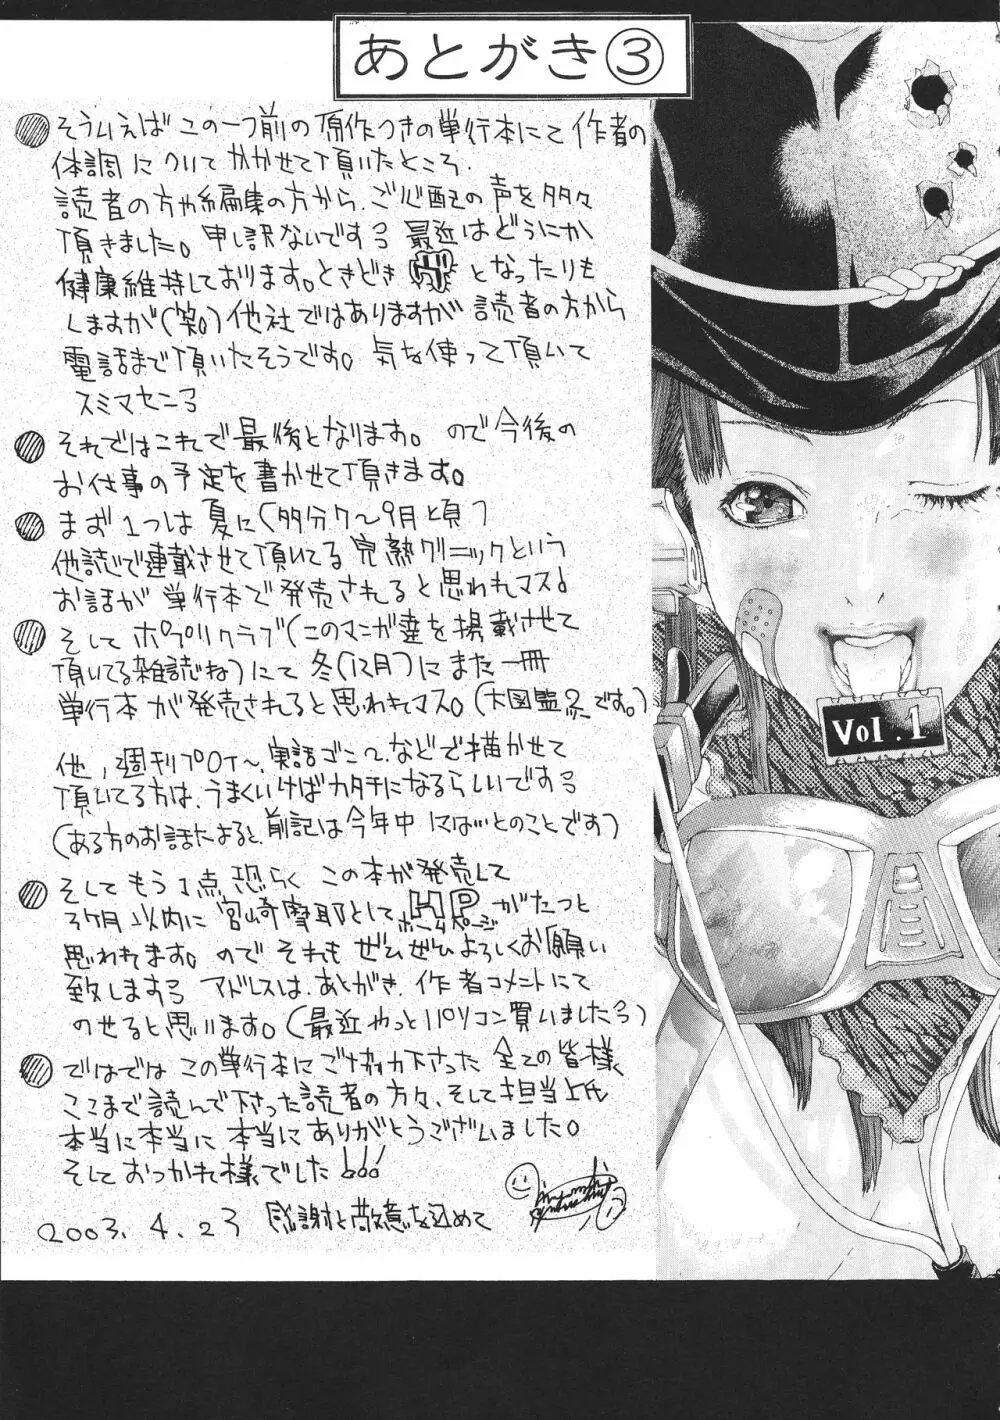 あとがき③
そういえばこの一つ前の原作つきの単行本にて作者の
体調についてかかせて頂いたところ、
読者の方や編集の方から、ご心配の声を多々
頂きました。申し訳ないですぅ 最近はどうにか
健康維持しております。ときどき となったりも
しますが(笑。)他社ではありますが読者の方から
電話まで頂いたそうです。気を使って頂いて
スミマセンぅ
それではこれで最後となります。ので今後の
お仕事の予定を書かせて頂きます。
まず1つは夏に(多分7〜9月頃)
他誌で連載させて頂いてる完熟クリニックという
お話が単行本で発売されると思われマス。
そしてポプリクラブ(このマンガ達を掲載させて
頂いてる雑誌ね)にて冬(12月)にまた一冊
単行本が発売されると思われマス。(大図鑑 です。)
他、週刊プロ 〜、実話ゴン 、などで描かせて
頂いてる方は、うまくいけばカタチになるらしいですぅ
(ある方のお話によると、前記は今年中には…とのことです)
そしてもう1点、恐らくこの本が発売して
3ヶ月以内に宮崎摩耶としてHPがたつと
ホームページ
思われます。のでそれもぜひぜひよろしくお願い
致しますぅ アドレスは、あとがき、作者コメントにて
のせると思います。(最近やっとパソコン買いましたぅ)
ではではこの単行本にご協力下さった全ての皆様、
ここまで読んで下さった読者の方々、そして担当上氏
本当に本当に本当にありがとうございました。
そしておつかれ様でした!!!
2003.4.23 感謝と敬意を込めて
Vol.1